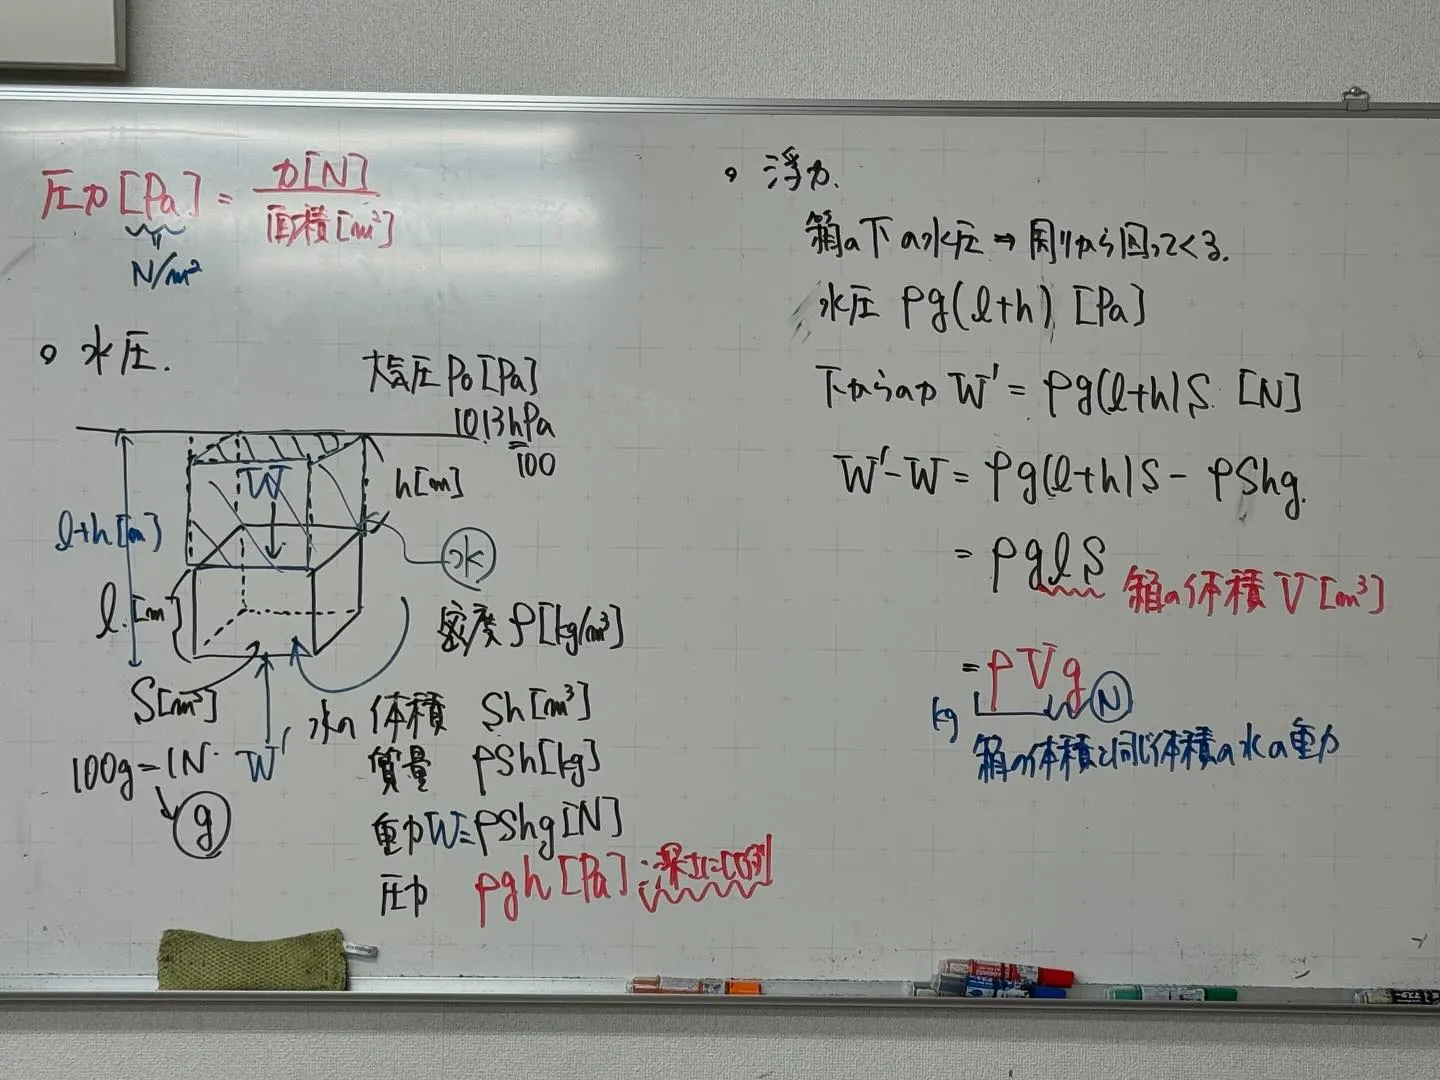 圧力[Pa] = 力[N] / 面積[m²]
N/m²
○ 水圧.
大気圧 P₀[Pa]
1013hPa
100
W
h[m]
l+h[m]
水
l.[m]
密度 ρ[kg/m³]
S[m²]
水の 体積 Sh[m³]
100g=1N
W'
質量 ρSh[kg]
g
重力W=ρShg[N]
圧力 ρgh[Pa]:深さに比例
○ 浮力.
箱の下の水圧⇒周りから回ってくる.
水圧 ρg(l+h) [Pa]
下からの力 W' = ρg(l+h)S. [N]
W'-W = ρg(l+h)S - ρShg.
= ρglS 箱の体積 V[m³]
= ρVg
kg N
箱の体積と同じ体積の水の重力